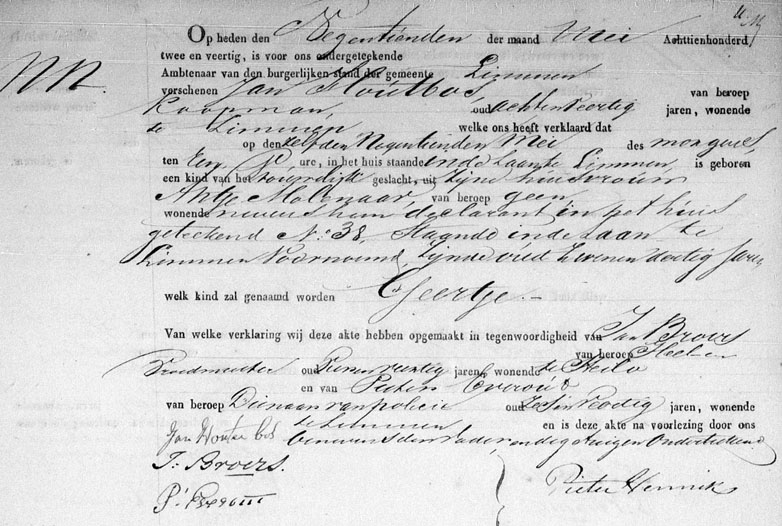 Op heden den Negentienden der maand Mei Achttienhonderd
twee en veertig, is voor ons ondergeteekende
Ambtenaar van den burgerlijken stand der gemeente Limmen
verschenen Jan Houtbos van beroep
Koopman, oud acht en veertig jaren, wonende
te Limmen welke ons heeft verklaard dat
op den zelfden Negentienden Mei des morgens
ten Een ure, in het huis staande in de Laan te Limmen is geboren
een kind van het vrouwelijk geslacht, uit zijne huisvrouw
Antje Molenaar, van beroep geen,
wonende nevens hem declarant in het huis
geteekend No. 38, staande in de Laan te
Limmen voornoemd, zijnde oud zeven en dertig Jaren
welk kind zal genaamd worden Geertje.
Van welke verklaring wij deze akte hebben opgemaakt in tegenwoordigheid van Jan Broers
van beroep
oud jaren, wonende te Heilo
en van Pieter
van beroep Dienaar van policie oud zes en veertig jaren, wonende
te Limmen en is deze akte na voorlezing door ons
benevens den Vader en de getuigen Onderteekend
Jan Houtebos
J: Broers.
Pieter